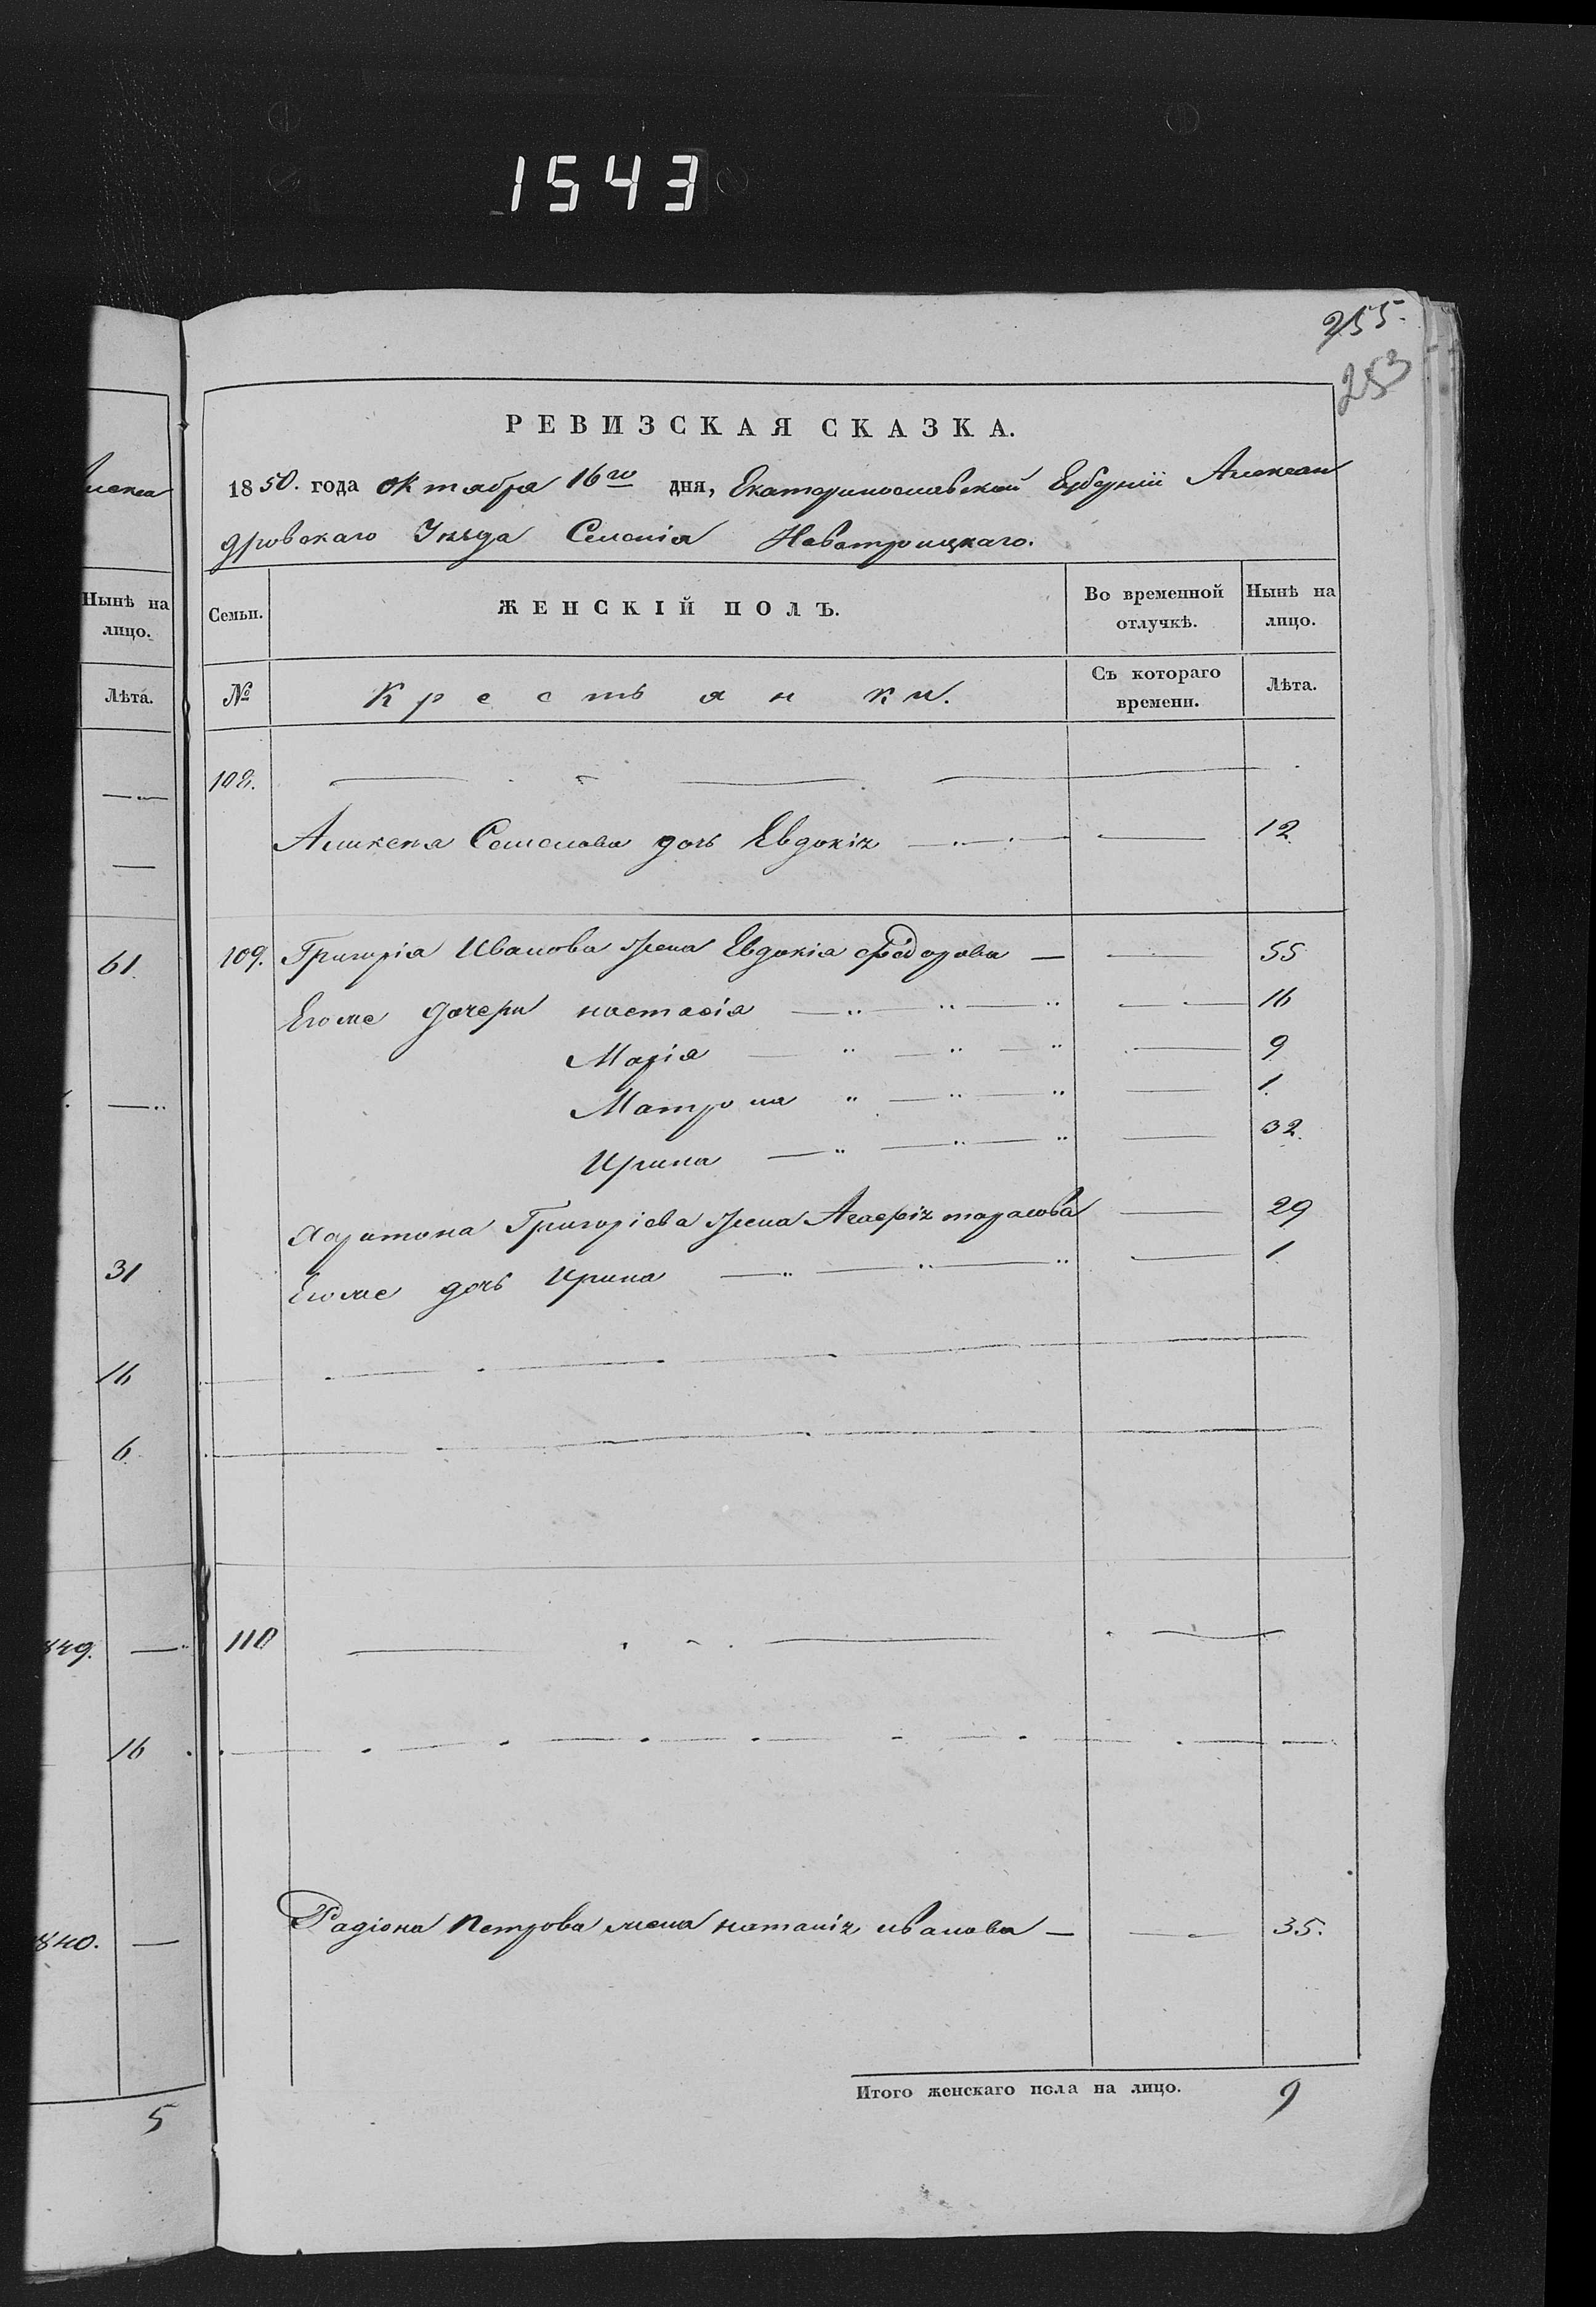 1543
255.
253
РЕВИЗСКАЯ СКАЗКА.
1850. года октября 16го дня, Екатеринославской Губернии Алексан
дровскаго Уѣзда Селенія Новотроицкаго.
Нынѣ на
лицо.
Лѣта.
61
31
16
6
849.
16
840.
5
Семьи.
ЖЕНСКІЙ ПОЛЪ.
Во временной
отлучкѣ.
Нынѣ на
лицо.
№
Крестьянки.
Съ котораго
времени.
Лѣта.
108.
Семенова дочь Евдокія 12
109. Григорія Иванова жена Евдокія Федорова 55
Егоже дочери настасія 16
Марія 9
Матрона 1.
Ирина 32.
Харитона Григоріева жена Агафія тарасова 29
Егоже дочь Ирина 1
110
Радіона Петрова жена наталія иванова 35.
Итого женскаго пола на лицо. 9